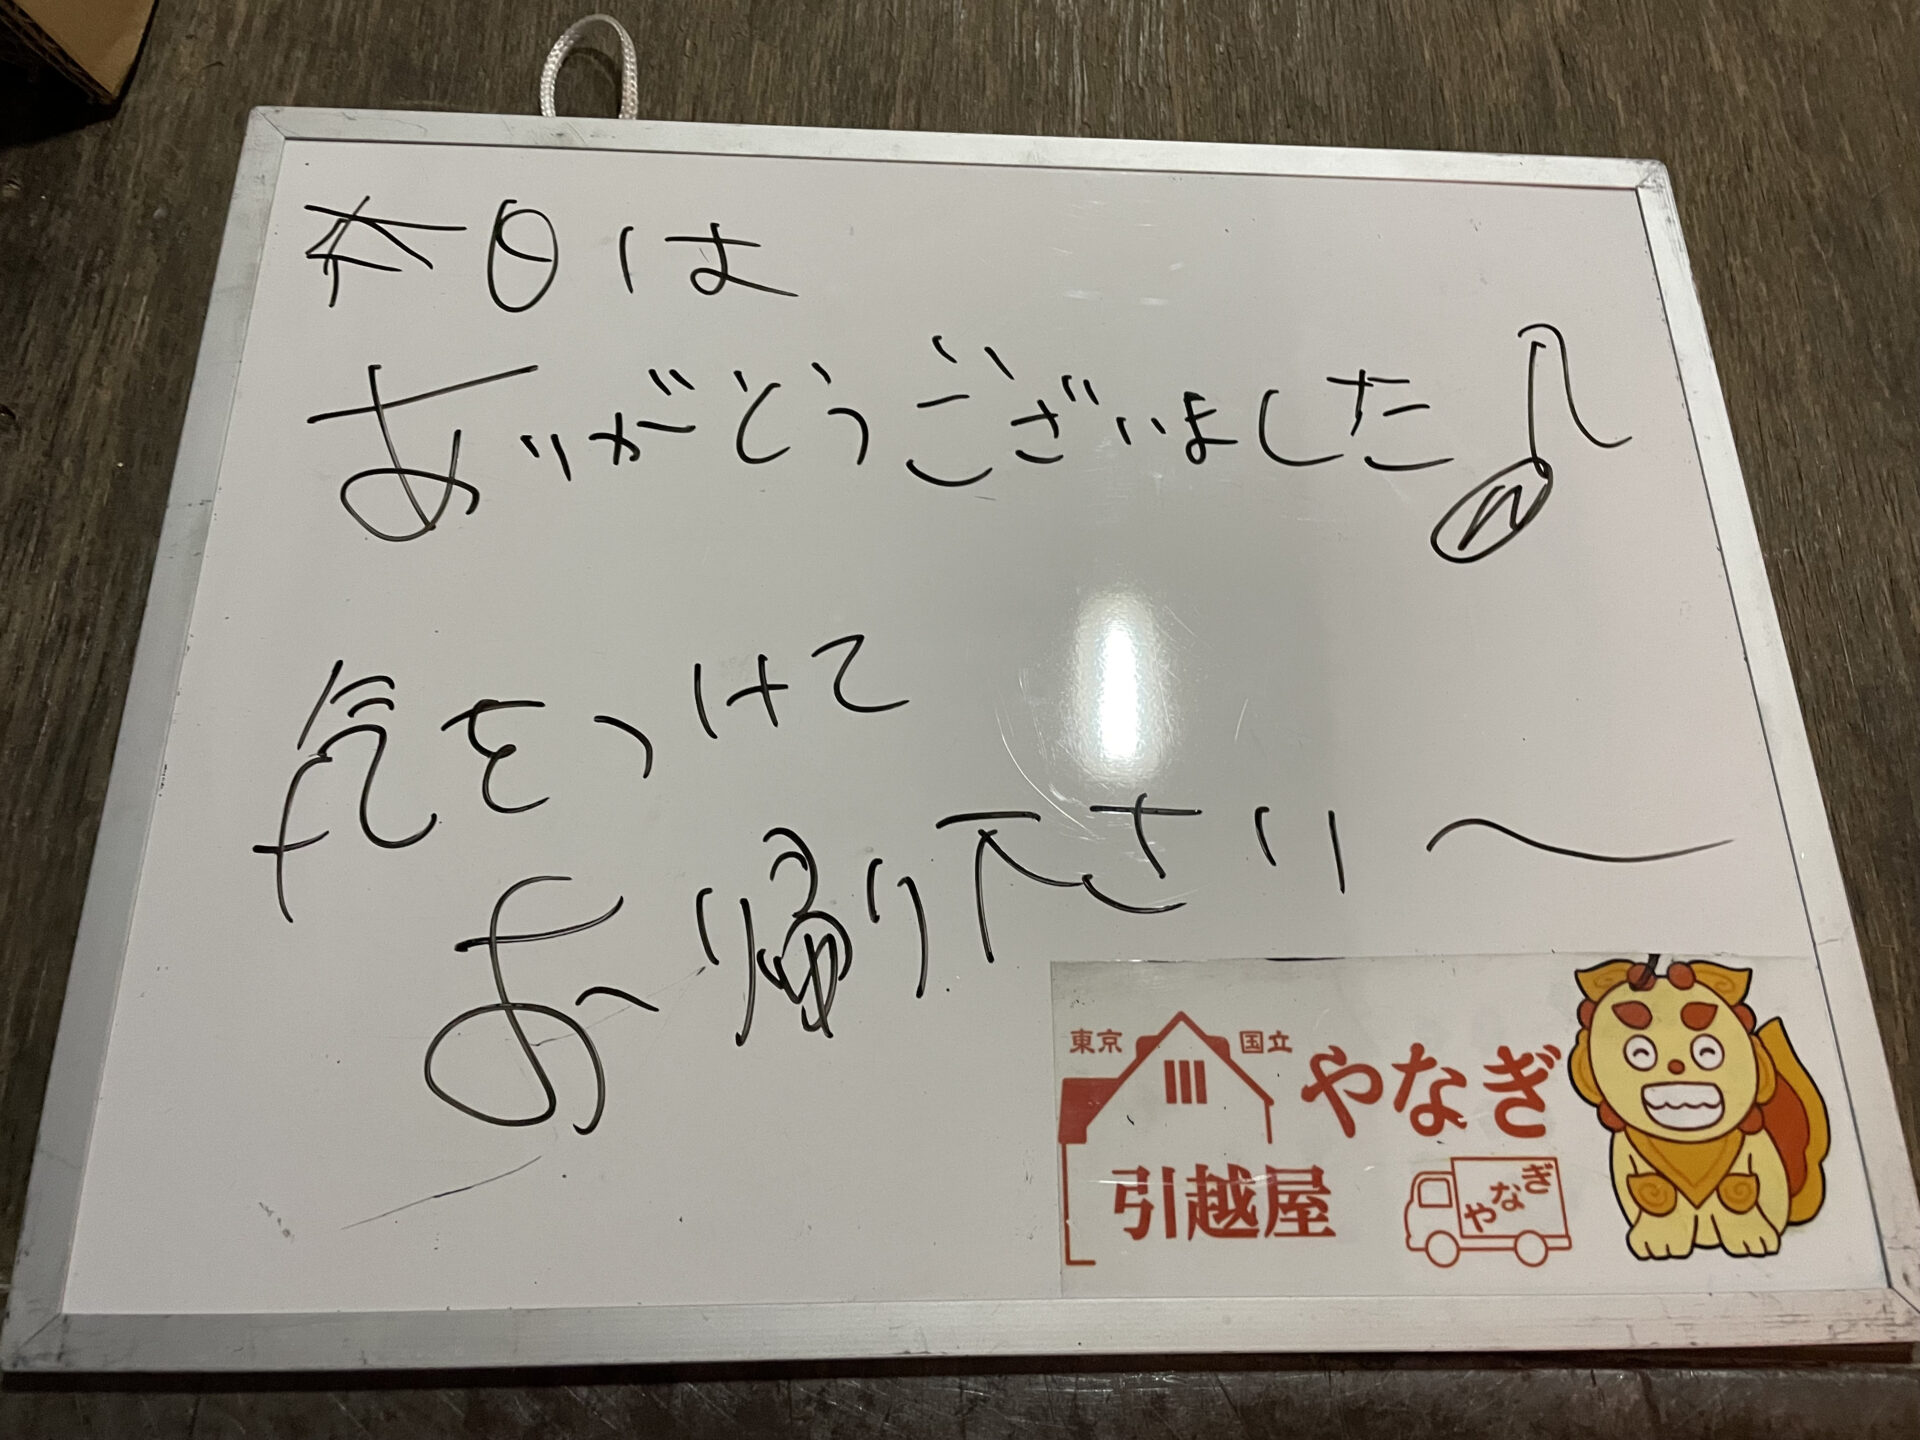 本日は
ありがとうございました♪
気をつけて
お帰り下さい〜
東京 国立
やなぎ
引越屋
やなぎ